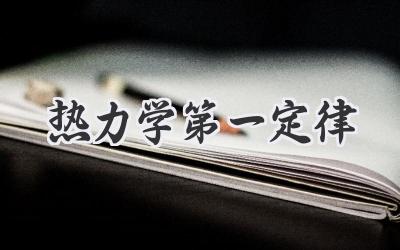 热力学第一定律